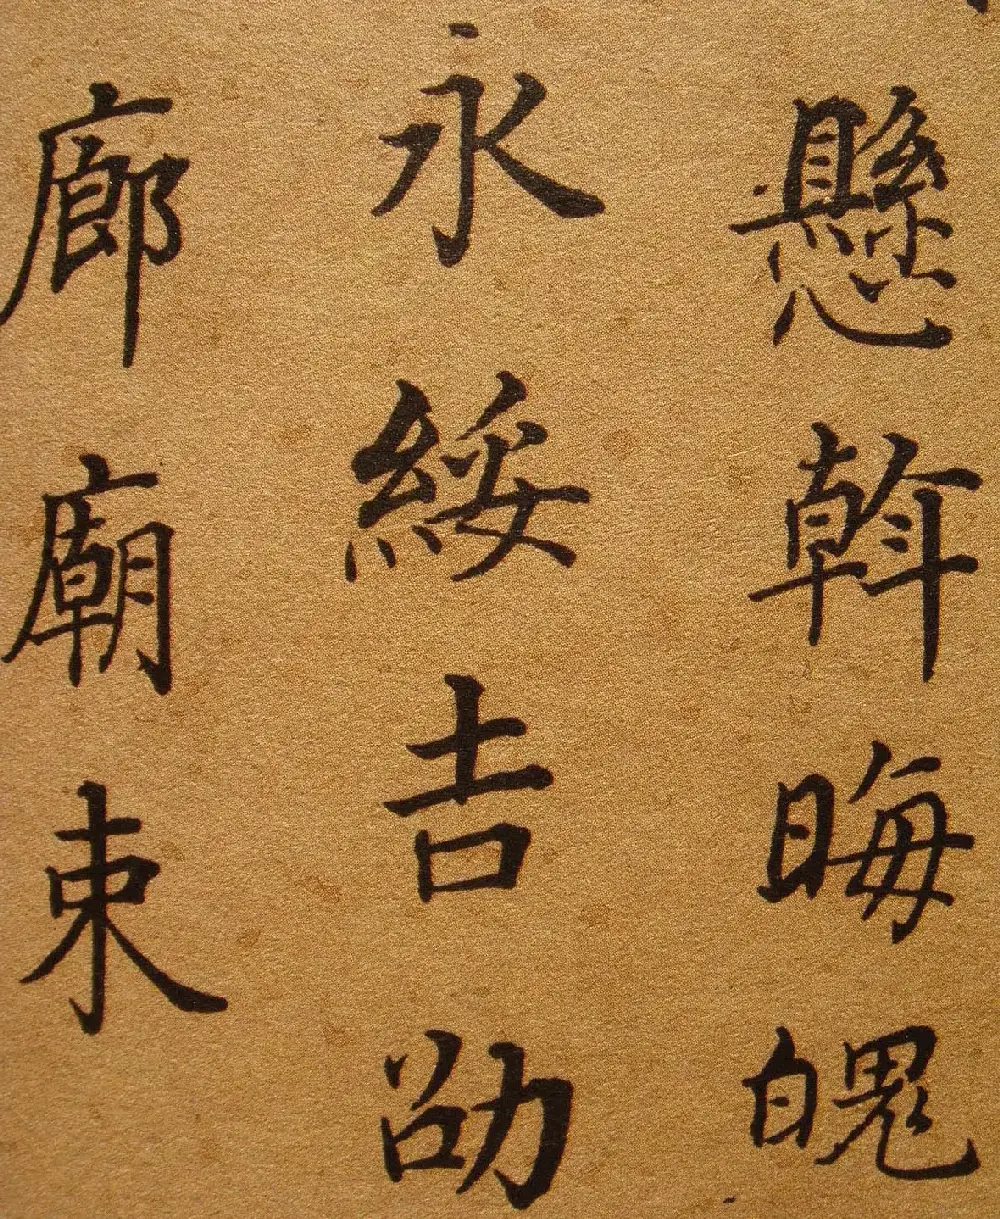 懸斡晦魄
永綏吉劭
廊廟束